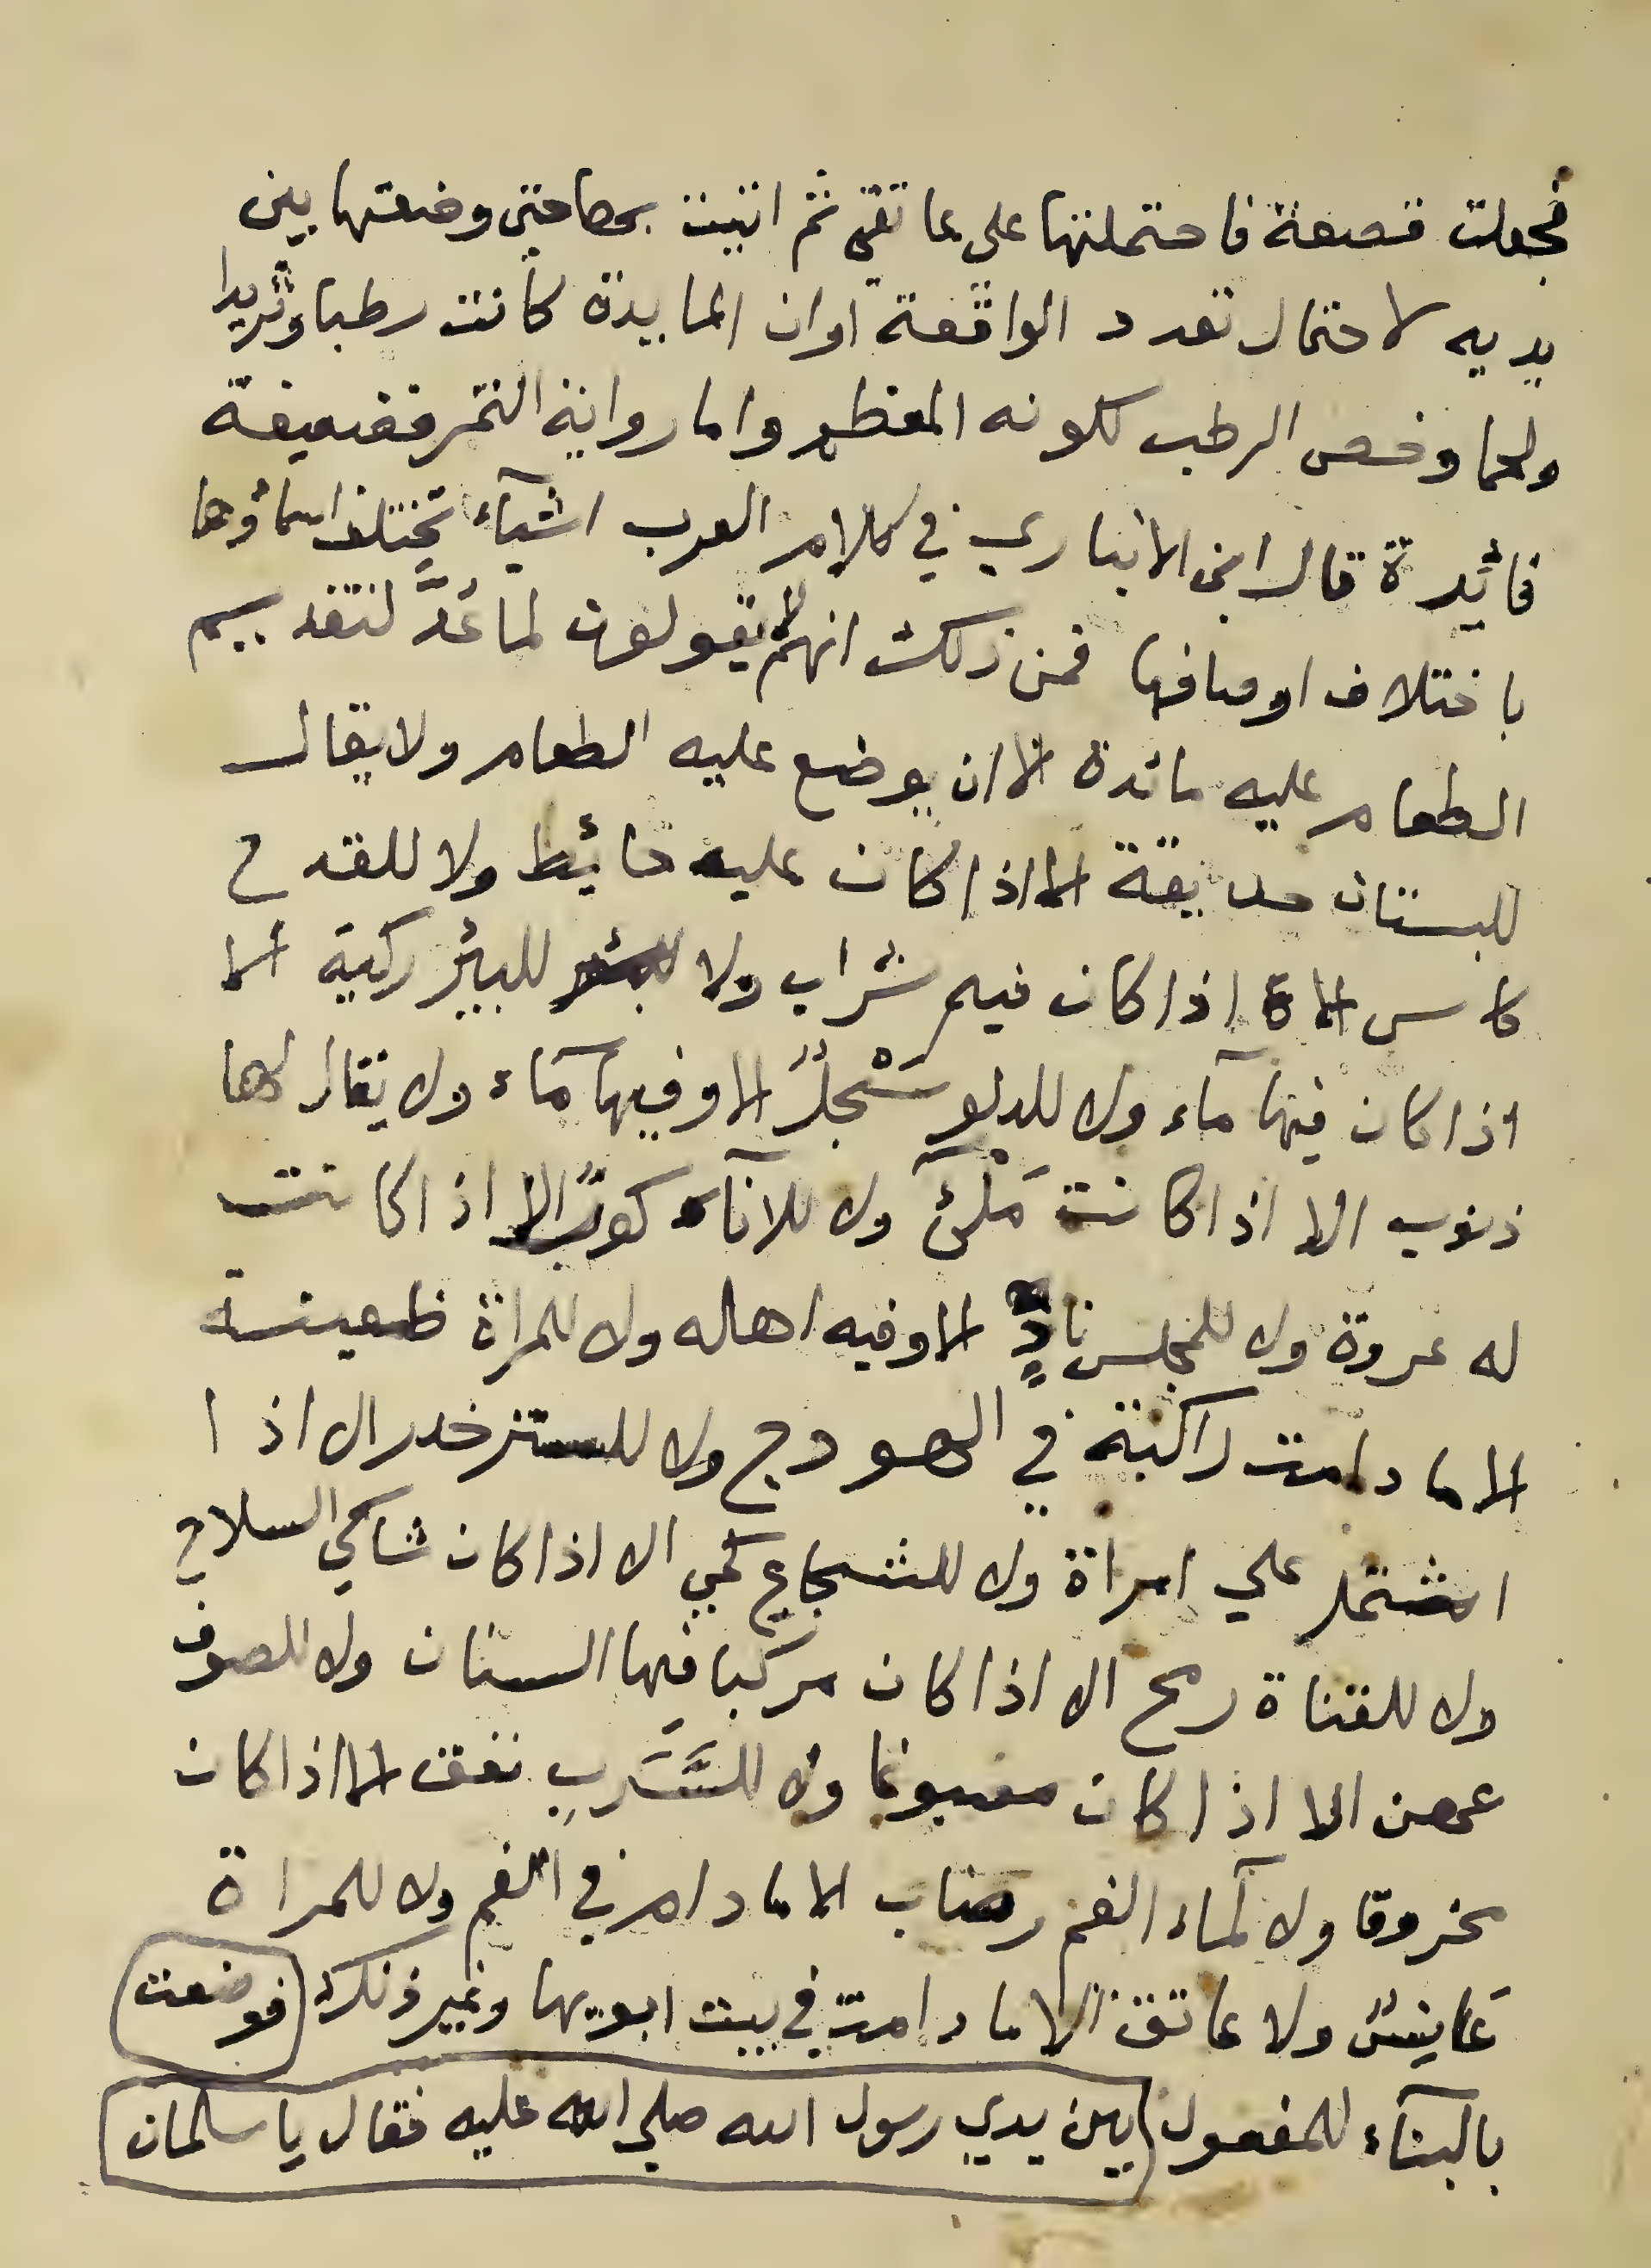 فجعلت قصعة فاحتملتها على عاتقي ثم اتيت بها حتي وضعتها بين
يديه لاحتمال تعدد الواقعة اوان المايدة كانت رطبا وثريدا
ولحما وخص الرطب لكونه المعظم واما رواية التمر فضعيفة
فائيدة قال ابن الانباري في كلام العرب اشيآء تختلف اسماؤها
باختلاف اوصافها فمن ذلك انهم لا يقولون لما عُدَّ لتقديم
الطعام عليه مائدة الا ان يوضع عليه الطعام ولا يقال
للبستان حديقة الا اذا كان عليه حائيط ولا للقدح
كاس الا اذا كان فيه شراب ولا للبيئر ركية الا
اذا كان فيها مآء ولا للدلو سَجْلٌ الا وفيها مآء ولا يقال لها
ذنوب الا اذا كانت مَلْئَ ولا للانآء كوزٌ الا اذا كانت
له عروة ولا للمجلس نادٍ الا وفيه اهله ولا للمراة ظعينة
الا ما دامت راكبة في الهودج ولا للستر خدر الا اذا
اشتمل علي امراة ولا للشجاع كمي الا اذا كان شاكي السلاح
ولا للقناة رمح الا اذا كان مركبا فيها السنان ولا للصوف
عهن الا اذا كان مصبوغا ولا للسَّرَبِ نفق الا اذا كان
مخروقا ولا لمآء الفم رضاب الا ما دام في الفم ولا للمراة
عَانِسٌ ولا عاتق الا ما دامت في بيت ابويها وغير ذلك فوضعت
بالبنآء للمفعول بين يدي رسول الله صلي الله عليه فقال يا سلمان